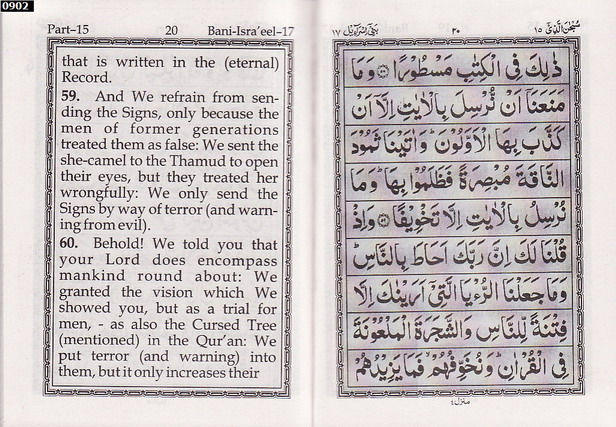 0902
Part–15 20 Bani-Isra'eel-17
that is written in the (eternal)
Record.
59. And We refrain from sen-
ding the Signs, only because the
men of former generations
treated them as false: We sent the
she-camel to the Thamud to open
their eyes, but they treated her
wrongfully: We only send the
Signs by way of terror (and warn-
ing from evil).
60. Behold! We told you that
your Lord does encompass
mankind round about: We
granted the vision which We
showed you, but as a trial for
men, - as also the Cursed Tree
(mentioned) in the Qur'an: We
put terror (and warning) into
them, but it only increases their
سُبْحٰنَ الَّذِیْٓ ١٥ ٢٠ بَنِیْٓ اِسْرَآءِیْل ١٧
ذٰلِكَ فِی الْكِتٰبِ مَسْطُوْرًا ۝ وَمَا
مَنَعَنَاۤ اَنْ نُّرْسِلَ بِالْاٰیٰتِ اِلَّاۤ اَنْ
كَذَّبَ بِهَا الْاَوَّلُوْنَ ؕ وَاٰتَیْنَا ثَمُوْدَ
النَّاقَةَ مُبْصِرَةً فَظَلَمُوْا بِهَا ؕ وَمَا
نُرْسِلُ بِالْاٰیٰتِ اِلَّا تَخْوِیْفًا ۝ وَاِذْ
قُلْنَا لَكَ اِنَّ رَبَّكَ اَحَاطَ بِالنَّاسِ ؕ
وَمَا جَعَلْنَا الرُّءْیَا الَّتِیْۤ اَرَیْنٰكَ اِلَّا
فِتْنَةً لِّلنَّاسِ وَالشَّجَرَةَ الْمَلْعُوْنَةَ
فِی الْقُرْاٰنِ ؕ وَنُخَوِّفُهُمْ ۙ فَمَا یَزِیْدُهُمْ
منزل ٤